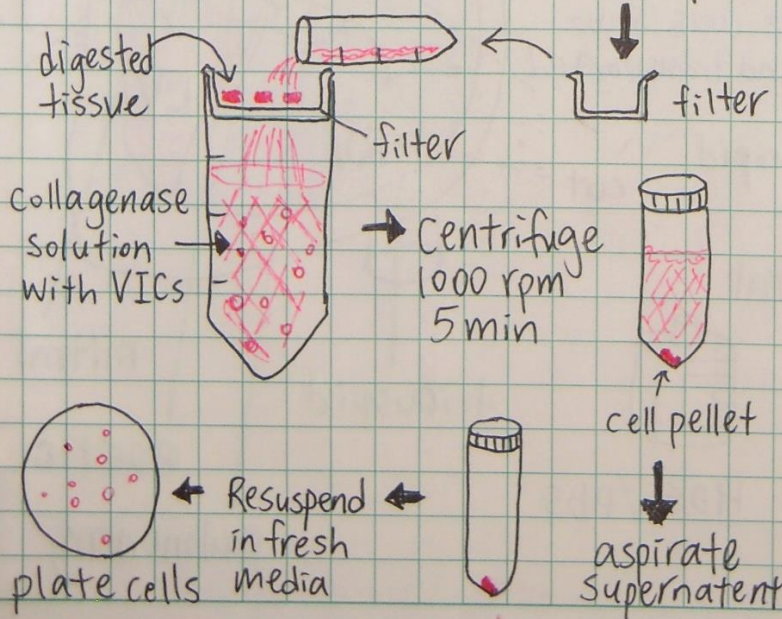 digested
tissue
filter
filter
collagenase
solution
with VICs
Centrifuge
1000 rpm
5 min
cell pellet
aspirate
supernatent
Resuspend
in fresh
media
plate cells